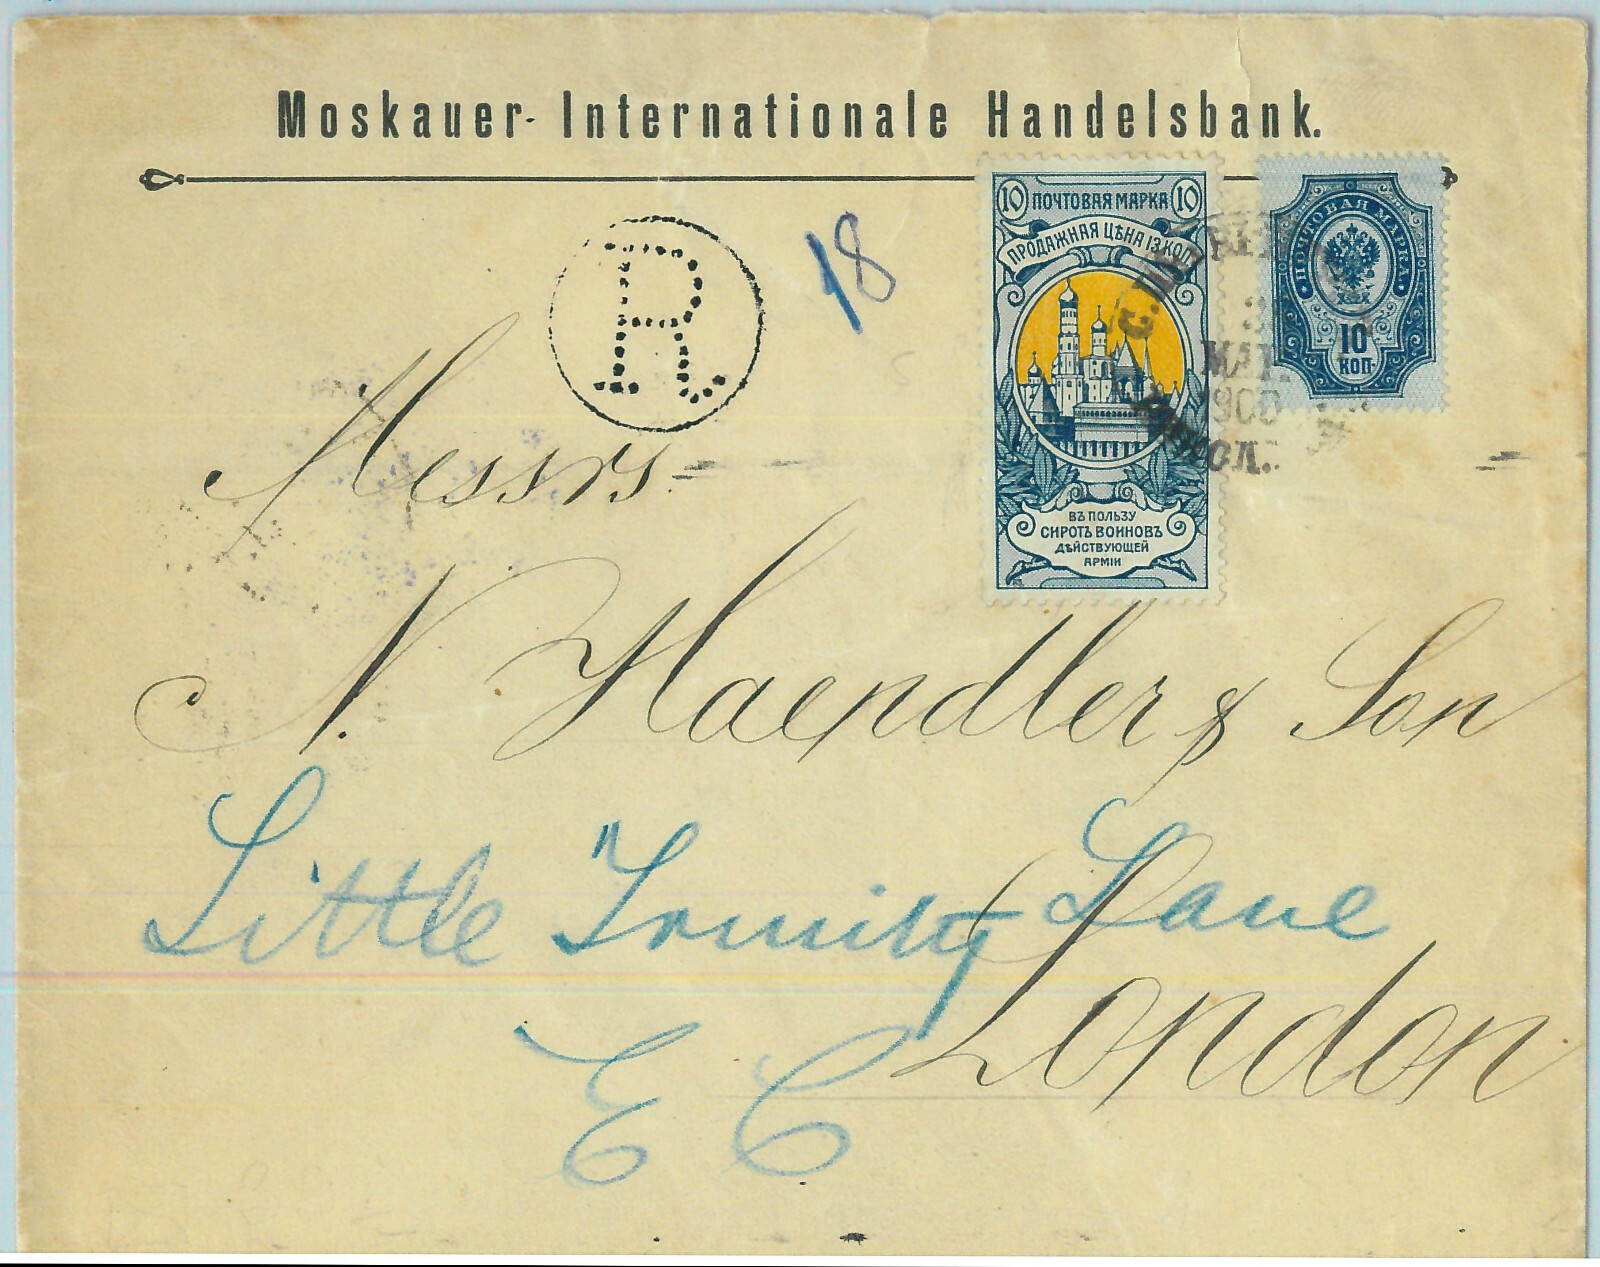 Moskauer- Internationale Handelsbank.
R
18
10 ПОЧТОВАЯ МАРКА 10
ПРОДАЖНАЯ ЦѢНА 13 КОП.
ВЪ ПОЛЬЗУ
СИРОТЪ ВОИНОВЪ
ДѢЙСТВУЮЩЕЙ
АРМІИ
ПОЧТОВАЯ МАРКА
10
КОП.
МАР.
Messrs
N. Haendler & Son
Little Trinity Lane
London
E C